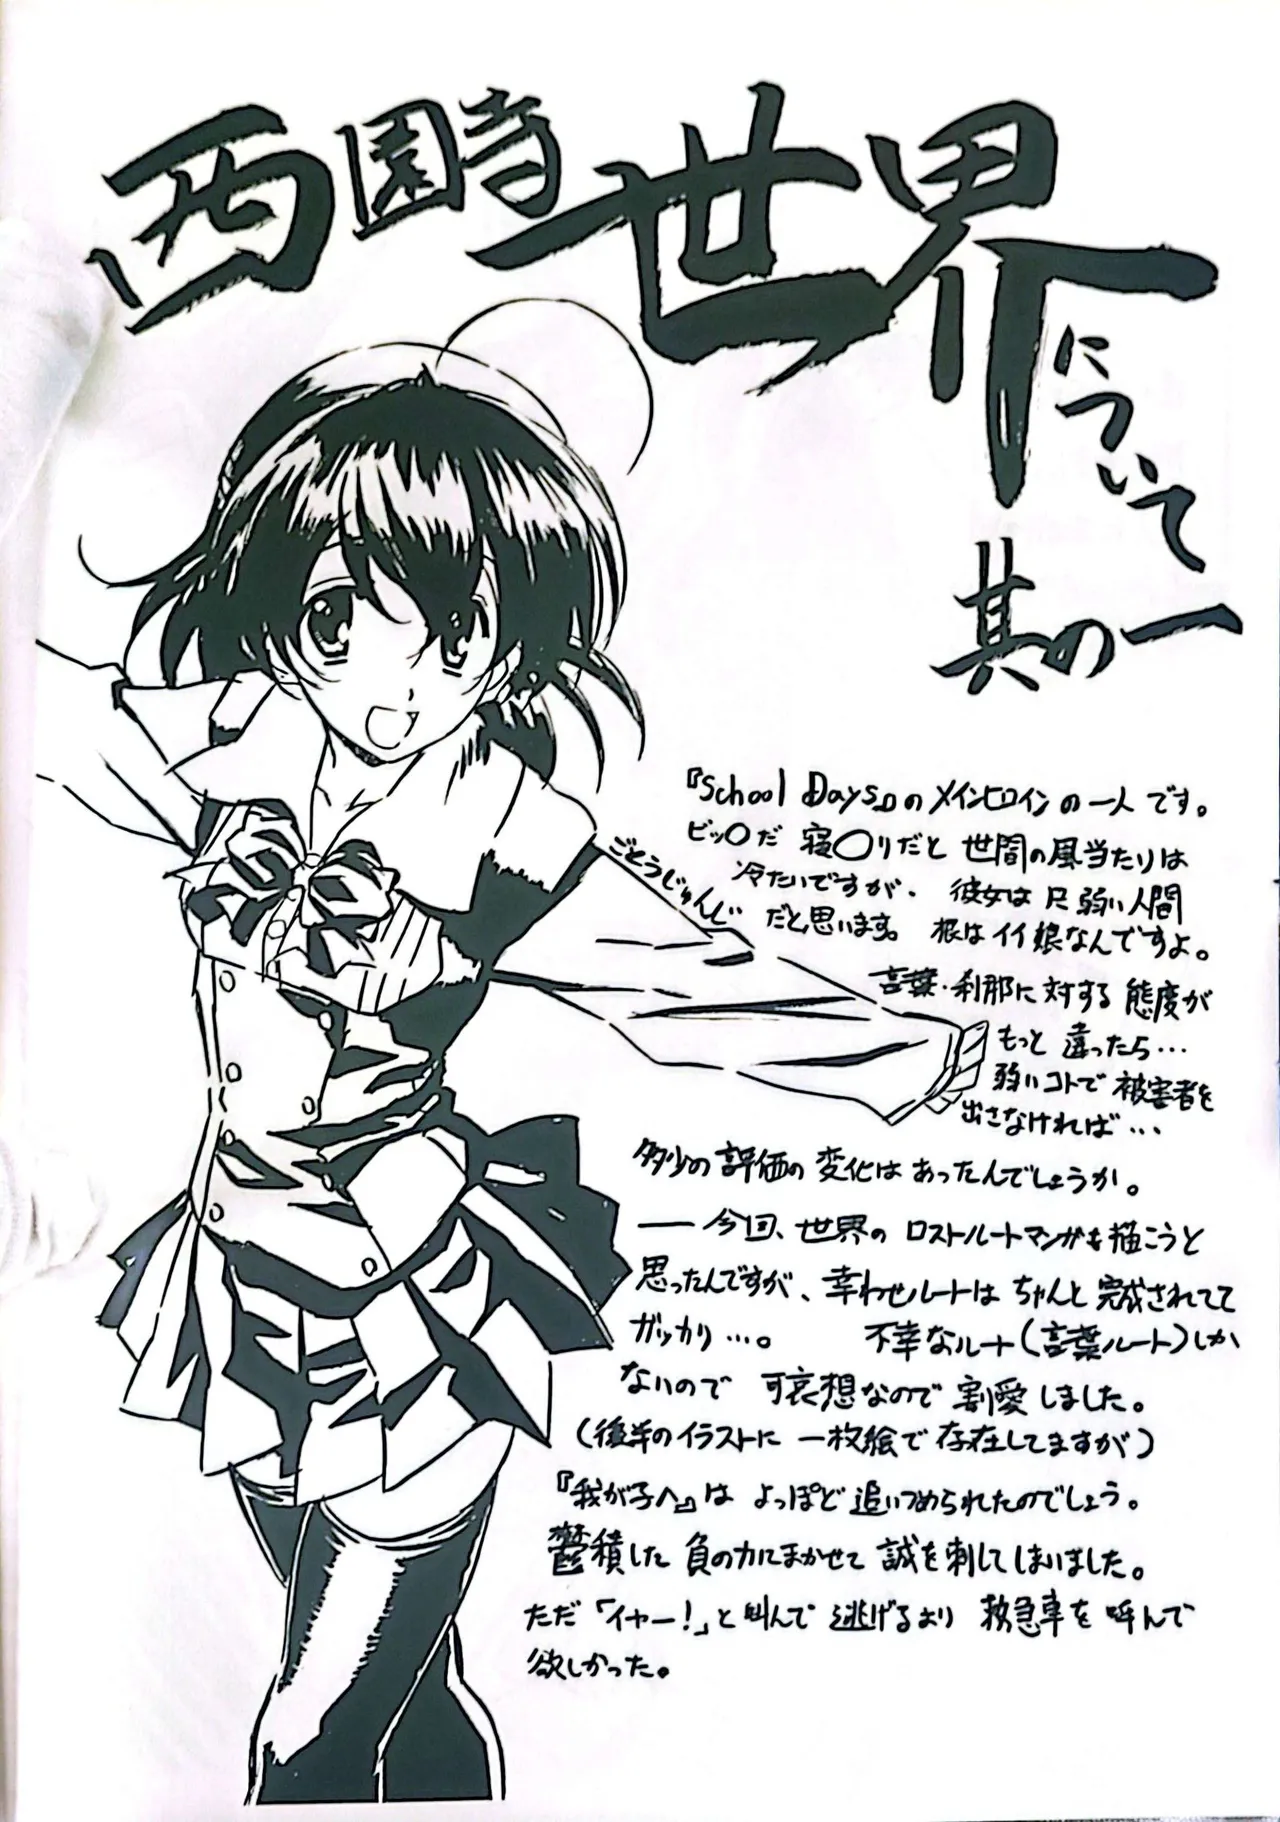 西園寺世界について
其の一
『School Days』のメインヒロインの一人です。
ビッ〇だ 寝〇りだと 世間の風当たりは
冷たいですが、彼女は只弱い人間
だと思います。根はイイ娘なんですよ。
ごとうじゅんじ
言葉・刹那に対する態度が
もっと違ったら…
弱いコトで被害者を
出さなければ…
多少の評価の変化はあったんでしょうか。
── 今回、世界の ロストルートマンガを描こうと
思ったんですが、幸わせルートは ちゃんと完成されてて
ガッカリ…。 不幸なルート(言葉ルート)しか
ないので 可哀想なので割愛しました。
(後半のイラストに 一枚絵で存在してますが)
『我が子へ』は よっぽど追いつめられたのでしょう。
鬱積した 負の力にまかせて 誠を刺してしまいました。
ただ「イヤー!」と叫んで 逃げるより 救急車を呼んで
欲しかった。